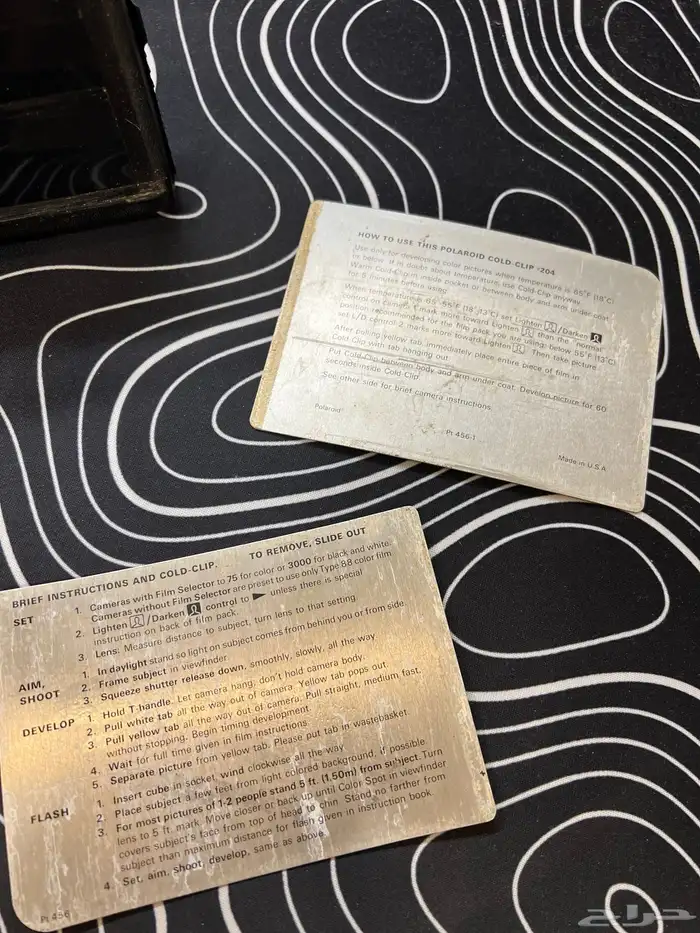 HOW TO USE THIS POLAROID COLD-CLIP #204
Use only for developing color pictures when temperature is 65°F (18°C)
or below. If in doubt about temperature, use Cold-Clip anyway.
Warm Cold-Clip in inside pocket or between body and arm under coat
for 5 minutes before using.
When temperature is 65-55°F (18-13°C) set Lighten /Darken
control on camera 1 mark more toward Lighten than the "normal"
position recommended for the film pack you are using; below 55°F (13°C)
set L/D control 2 marks more toward Lighten . Then take picture.
After pulling yellow tab, immediately place entire piece of film in
Cold-Clip with tab hanging out.
Put Cold-Clip between body and arm under coat. Develop picture for 60
seconds inside Cold-Clip.
See other side for brief camera instructions.
Polaroid®
Pt 456-1
Made in U.S.A
BRIEF INSTRUCTIONS AND COLD-CLIP. TO REMOVE, SLIDE OUT
SET 1. Cameras with Film Selector to 75 for color or 3000 for black and white.
Cameras without Film Selector are preset to use only Type 88 color film
2. Lighten /Darken control to ► unless there is special
instruction on back of film pack.
3. Lens: Measure distance to subject, turn lens to that setting
AIM, SHOOT 1. In daylight stand so light on subject comes from behind you or from side.
2. Frame subject in viewfinder.
3. Squeeze shutter release down, smoothly, slowly, all the way
DEVELOP 1. Hold T-handle. Let camera hang; don't hold camera body.
2. Pull white tab all the way out of camera. Yellow tab pops out.
3. Pull yellow tab all the way out of camera. Pull straight, medium fast,
without stopping. Begin timing development
4. Wait for full time given in film instructions.
5. Separate picture from yellow tab. Please put tab in wastebasket.
FLASH 1. Insert cube in socket, wind clockwise all the way
2. Place subject a few feet from light colored background, if possible
3. For most pictures of 1-2 people stand 5 ft. (1.50m) from subject. Turn
lens to 5 ft. mark. Move closer or back up until Color Spot in viewfinder
covers subject's face from top of head to chin. Stand no farther from
subject than maximum distance for flash given in instruction book.
4. Set, aim, shoot, develop, same as above.
Pt 456
حراج